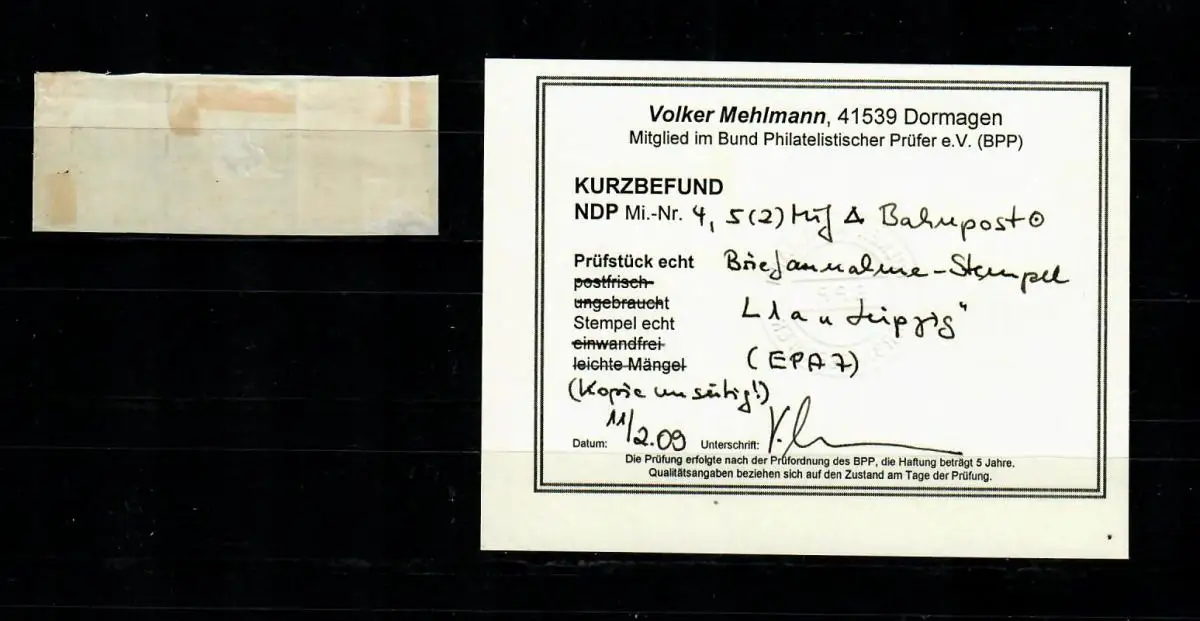 Volker Mehlmann, 41539 Dormagen
Mitglied im Bund Philatelistischer Prüfer e.V. (BPP)
KURZBEFUND
NDP Mi.-Nr. 4, 5(2) Mif Δ Bahnpost ⊙
Prüfstück echt Briefannahme-Stempel
postfrisch
ungebraucht
Stempel echt Leipzig"
einwandfrei
leichte Mängel (EPA7)
(Kopie umseitig!)
Datum: 11/2.09 Unterschrift:
Die Prüfung erfolgte nach der Prüfordnung des BPP, die Haftung beträgt 5 Jahre.
Qualitätsangaben beziehen sich auf den Zustand am Tage der Prüfung.